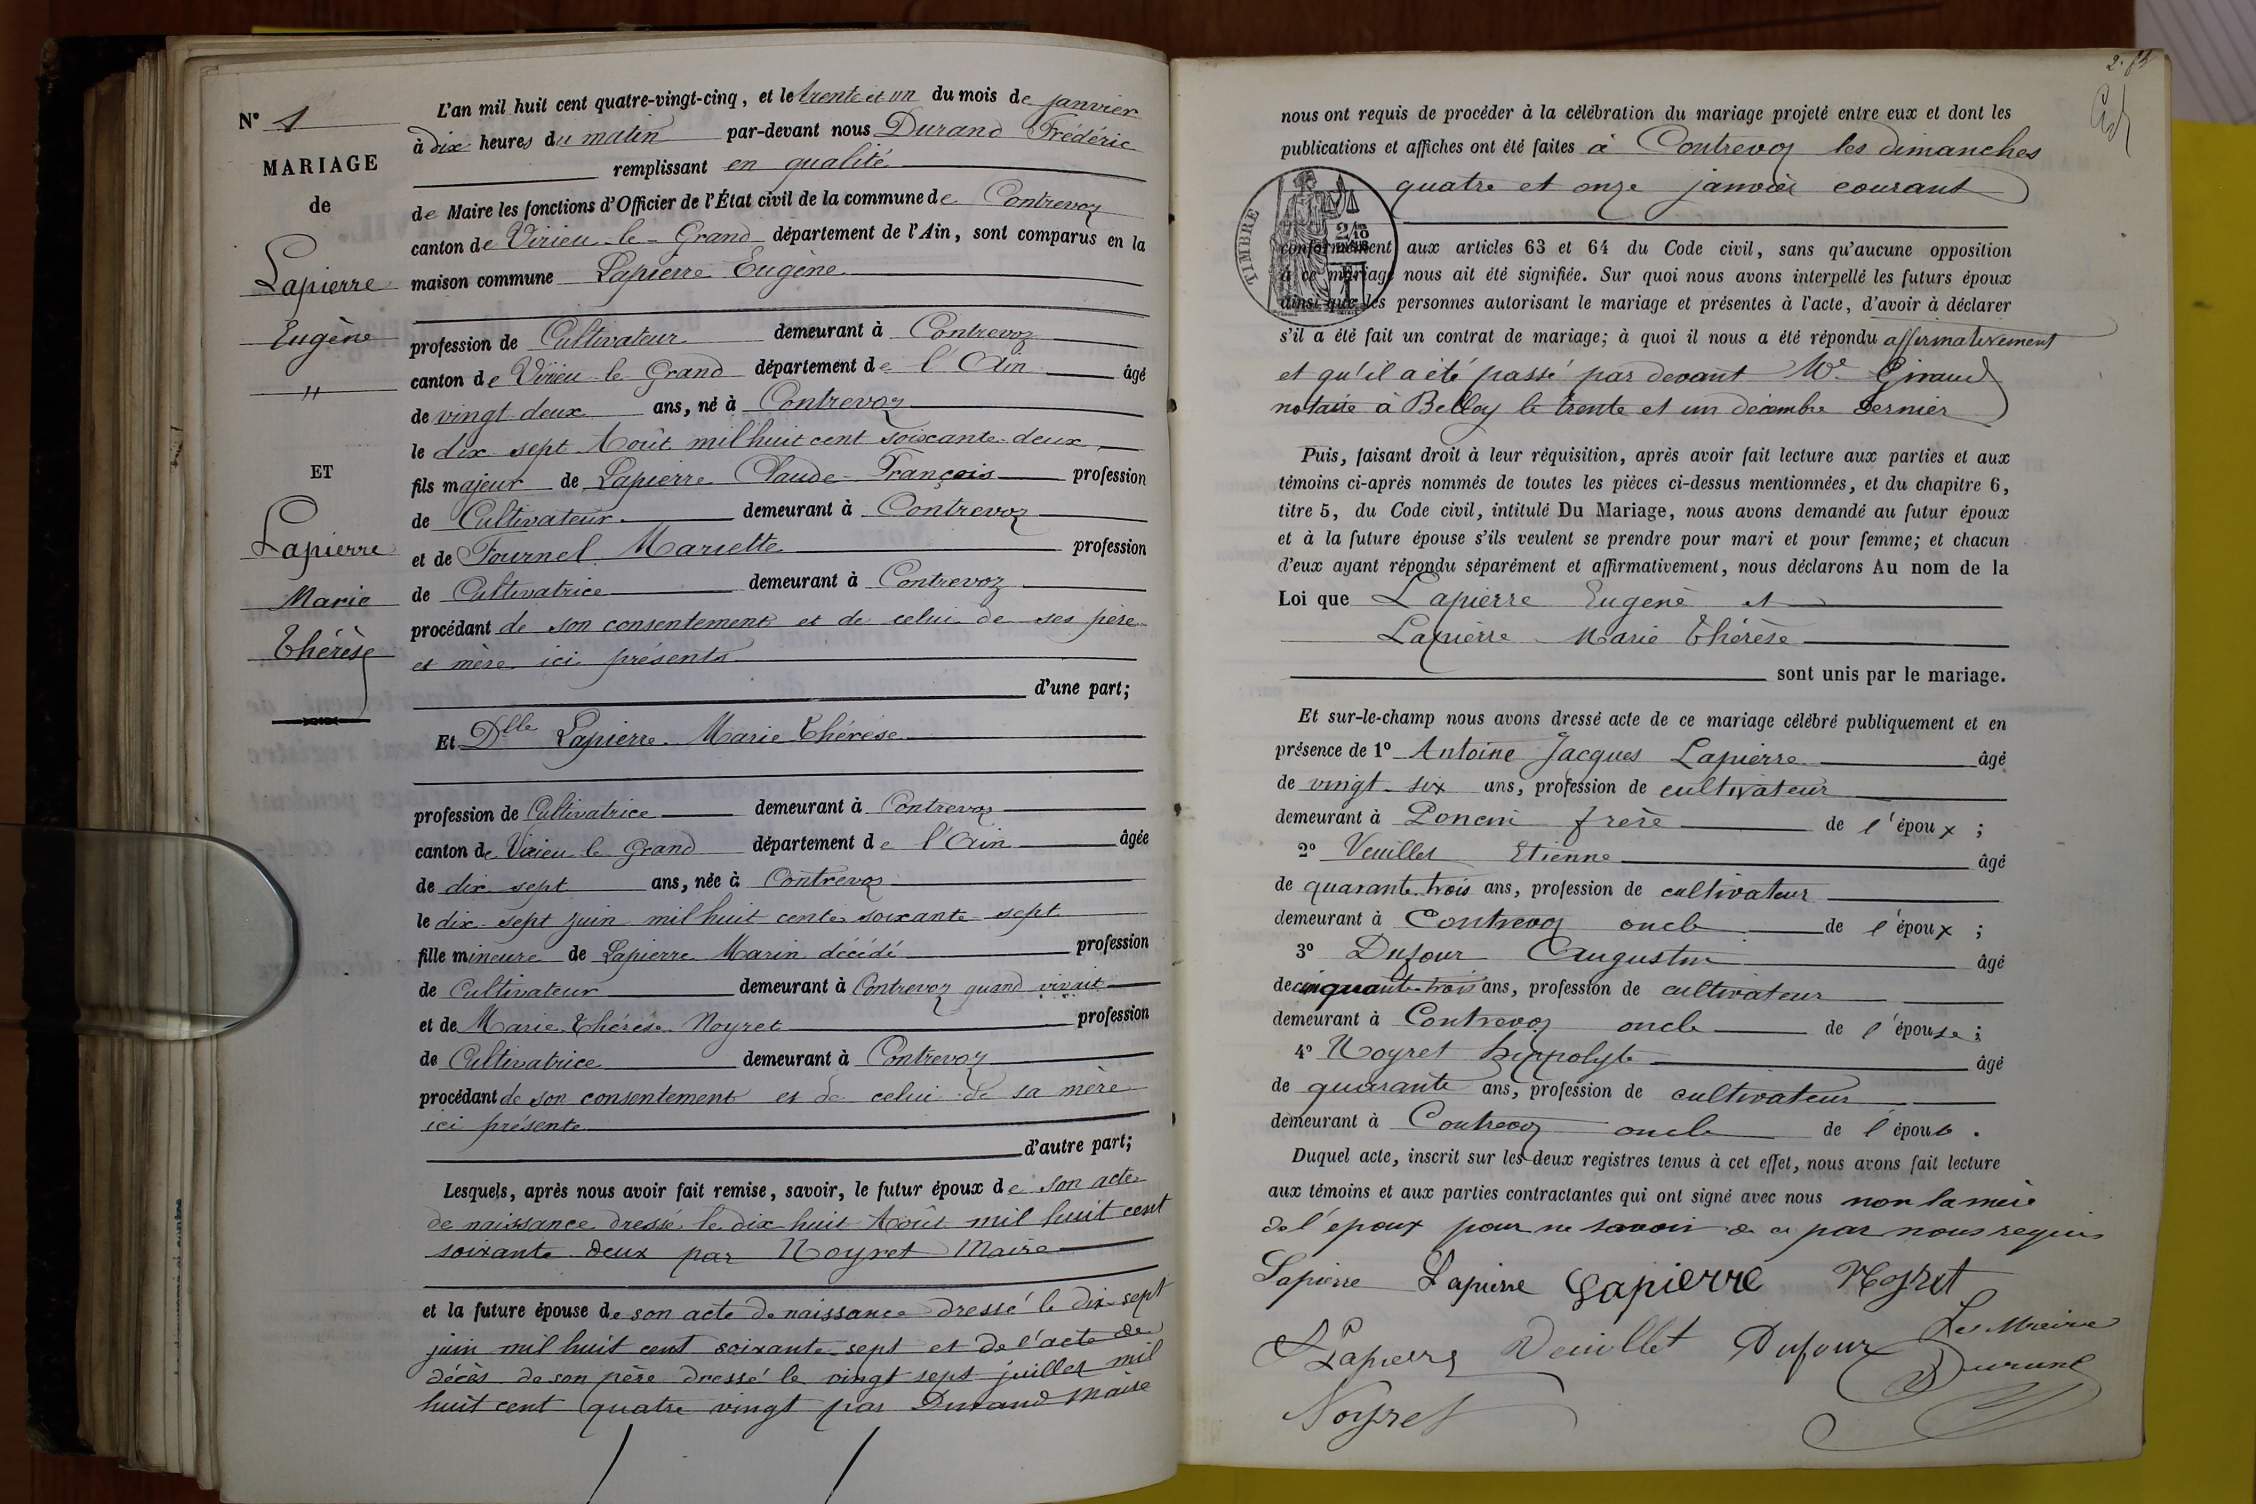 N° 1
MARIAGE
de
Lapierre
Eugène
"
ET
Lapierre
Marie
Thérèse
L'an mil huit cent quatre-vingt-cinq, et le trente et un du mois de janvier
à dix heures du matin par-devant nous Durand Frédéric
remplissant en qualité
de Maire les fonctions d'Officier de l'État civil de la commune de Contrevoz
canton de Virieu-le-Grand département de l'Ain, sont comparus en la
maison commune Lapierre Eugène
profession de Cultivateur demeurant à Contrevoz
canton de Virieu le Grand département de l'Ain âgé
de vingt deux ans, né à Contrevoz
le dix sept Août mil huit cent soixante-deux
fils majeur de Lapierre Claude-François profession
de Cultivateur demeurant à Contrevoz
et de Fournel Mariette profession
de Cultivatrice demeurant à Contrevoz
procédant de son consentement et de celui de ses père
et mère ici présents
d'une part;
Et Dlle Lapierre Marie Thérèse
profession de Cultivatrice demeurant à Contrevoz
canton de Virieu le Grand département de l'Ain âgée
de dix sept ans, née à Contrevoz
le dix-sept juin mil huit cente soixante sept
fille mineure de Lapierre Marin décédé profession
de Cultivateur demeurant à Contrevoz quand vivait
et de Marie Thérèse Noyret profession
de Cultivatrice demeurant à Contrevoz
procédant de son consentement et de celui de sa mère
ici présente
d'autre part;
Lesquels, après nous avoir fait remise, savoir, le futur époux de son acte
de naissance dressé le dix-huit Août mil huit cent
soixante deux par Noyret Maire
et la future épouse de son acte de naissance dressé le dix-sept
juin mil huit cent soixante-sept et de l'acte de
décès de son père dressé le vingt sept juillet mil
huit cent quatre vingt par Durand Maire
nous ont requis de procéder à la célébration du mariage projeté entre eux et dont les
publications et affiches ont été faites à Contrevoz les dimanches
quatre et onze janvier courant
TIMBRE
conformément aux articles 63 et 64 du Code civil, sans qu'aucune opposition
à ce mariage nous ait été signifiée. Sur quoi nous avons interpellé les futurs époux
ainsi que les personnes autorisant le mariage et présentes à l'acte, d'avoir à déclarer
s'il a été fait un contrat de mariage; à quoi il nous a été répondu affirmativement
et qu'il a été passé par devant Me Giraud
notaire à Belley le trente et un décembre dernier
Puis, faisant droit à leur réquisition, après avoir fait lecture aux parties et aux
témoins ci-après nommés de toutes les pièces ci-dessus mentionnées, et du chapitre 6,
titre 5, du Code civil, intitulé Du Mariage, nous avons demandé au futur époux
et à la future épouse s'ils veulent se prendre pour mari et pour femme; et chacun
d'eux ayant répondu séparément et affirmativement, nous déclarons Au nom de la
Loi que Lapierre Eugène et
Lapierre Marie Thérèse
sont unis par le mariage.
Et sur-le-champ nous avons dressé acte de ce mariage célébré publiquement et en
présence de 1° Antoine Jacques Lapierre âgé
de vingt-six ans, profession de cultivateur
demeurant à Poncin frère de l'époux ;
2° Veuillet Etienne âgé
de quarante trois ans, profession de cultivateur
demeurant à Contrevoz oncle de l'époux ;
3° Dufour Augustin âgé
de cinquante-trois ans, profession de cultivateur
demeurant à Contrevoz oncle de l'épouse ;
4° Noyret hippolyte âgé
de quarante ans, profession de cultivateur
demeurant à Contrevoz oncle de l'épouse .
Duquel acte, inscrit sur les deux registres tenus à cet effet, nous avons fait lecture
aux témoins et aux parties contractantes qui ont signé avec nous non la mère
de l'époux pour ne savoir de ce par nous requis
Lapierre Lapierre Lapierre Noyret
Lapierre Veuillet Dufour Le Maire
Noyret Durand